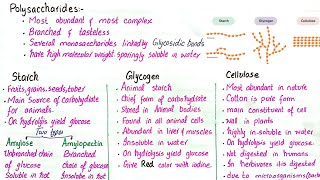 Polysaccharides:-
• Most abundant & most complex
• Branched & tasteless
• Several monosaccharides linked by Glycosidic bonds
• have high molecular weight sparingly soluble in water
Starch Glycogen Cellulose
Starch
• Fruits, grains, seeds, tuber
• Main Source of carbohydrate
for animals.
• On hydrolysis yield glucose
Two types
Amylose Amylopectin
Unbranched chain Branched chain
of glucose of glucose
Soluble in hot Insoluble in hot
Glycogen
• Animal starch
• Chief form of carbohydrate
• Stored in Animal bodies
• Found in all animal cells
• Abundant in liver & muscles
• Insoluble in water
• On hydrolysis yield glucose
• Give Red color with iodine.
Cellulose
• Most abundant in nature
• Cotton is pure form
• main constituent of cell
wall in plants
• highly in-soluble in water
• On hydrolysis yield glucose
• Not digested in humans
• In herbivores its digested
due to microorganisms